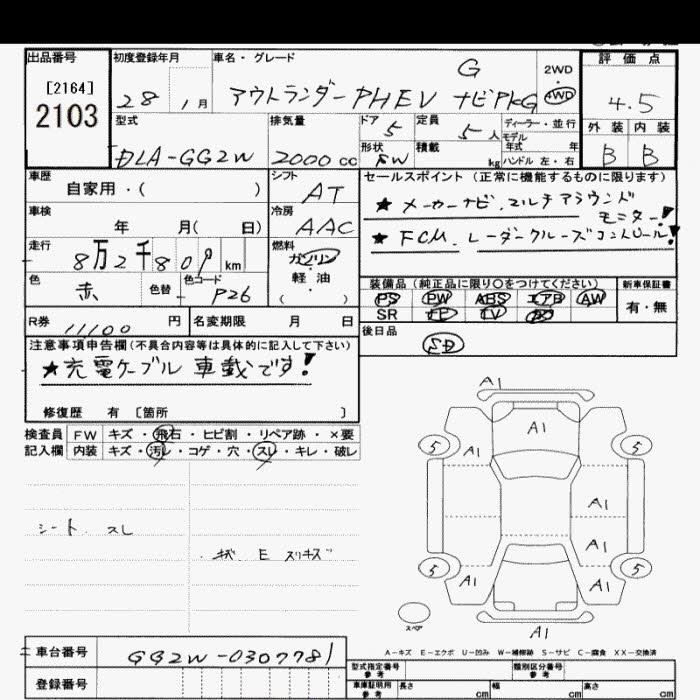 出品番号 初度登録年月 車名・グレード 評価点
[2164]
2103
28 1月 アウトランダーPHEV G ナビPkG 2WD 4WD 4.5
型式 排気量 ドア 5 定員 5人 ディーラー・並行 外装 内装
モデル年式 年
DLA-GG2W 2000cc 形状 5W 積載 kg ハンドル 左・右 B B
車歴 シフト セールスポイント(正常に機能するものに限ります)
自家用・( ) AT ★メーカーナビ.マルチアラウンドモニター!
車検 冷房
年 月( 日) AAC ★FCM.レーダークルーズコントロール!
走行 燃料
8万2千809km ガソリン・軽油
( )
色 色替 色コード
赤 P26
装備品(純正品に限り○をつけてください) 新車保証書
PS PW ABS エアB AW 有・無
SR TV
R券 11100円 名変期限 月 日 後日品
SD
注意事項申告欄(不具合内容等は具体的に記入して下さい)
★充電ケーブル 車載です!
修復歴 有 [箇所 ]
検査員 FW キズ・飛石・ヒビ割・リペア跡・×要
記入欄 内装 キズ・汚レ・コゲ・穴・スレ・キレ・破レ
シート.スレ
.キズ E スリキズ
A1
A1
5 A1 5
A1
A1
5 A1 A1 5
スペア A1
A-キズ E-エクボ U-凹み W-補修跡 S-サビ C-腐食 XX-交換済
車台番号 GG2W-0307781
登録番号
型式指定番号 参考 類別区分番号 参考
車庫証明用 参考 長さ cm 幅 cm 高さ cm